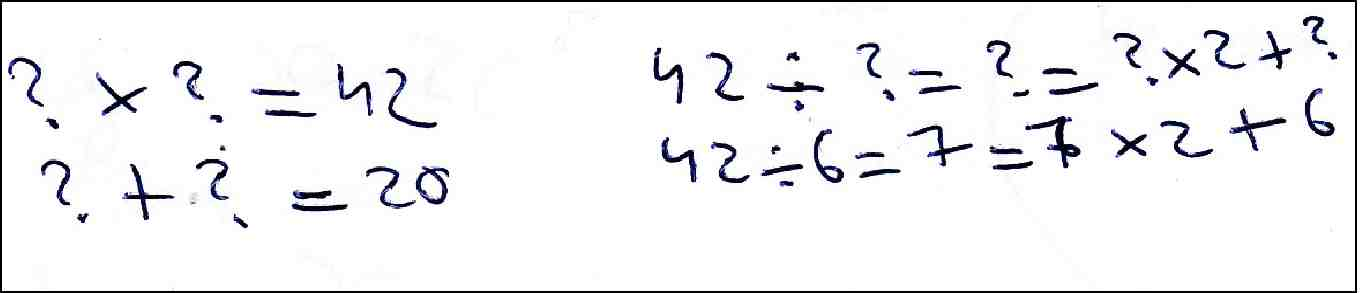 ? × ? = 42
? + ? = 20
42 ÷ ? = ? = ? × 2 + ?
42 ÷ 6 = 7 = 7 × 2 + 6